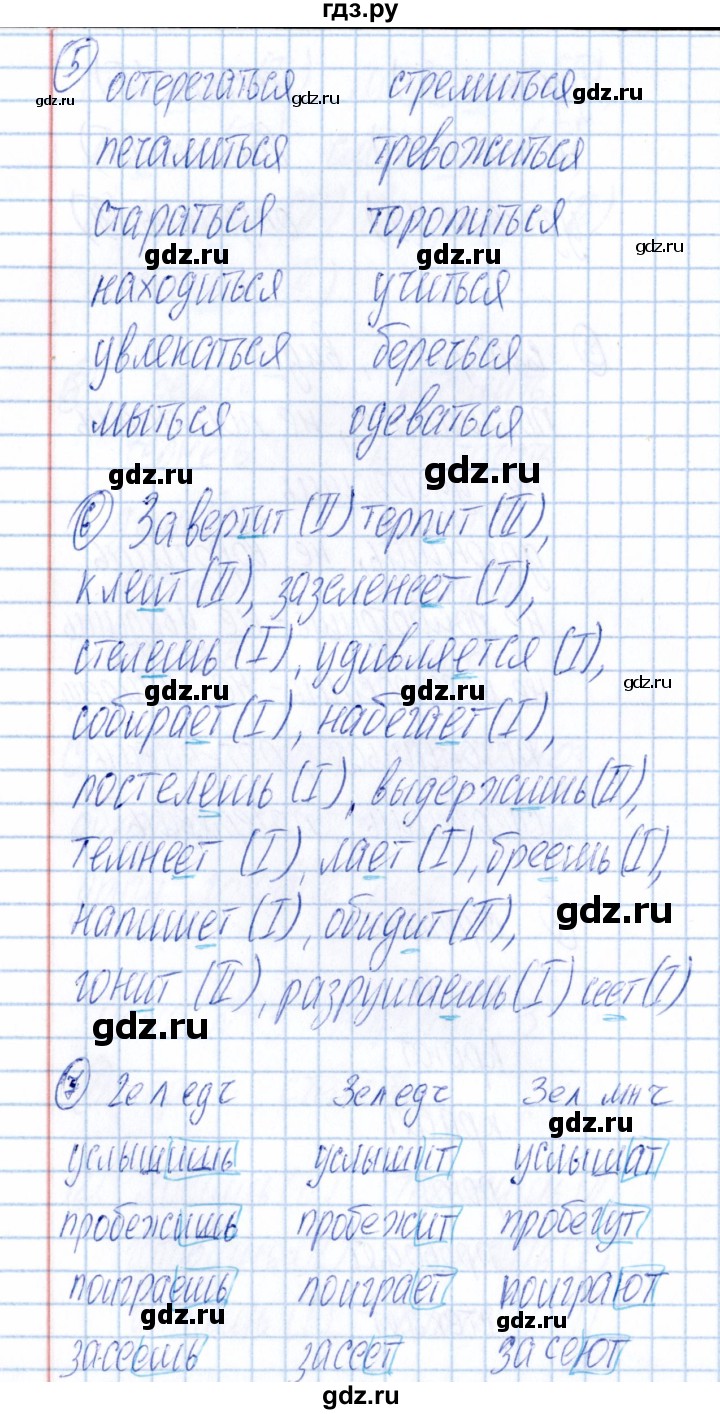 гдз.ру
5 остерегаться стремиться
gdz.ru gdz.ru gdz.ru
печалиться тревожиться
стараться торопиться
gdz.ru gdz.ru gdz.ru
находиться учиться
увлекаться беречься
мыться одеваться
gdz.ru gdz.ru
6 Завертит (II) терпит (II),
клеит (II), зазеленеет (I),
стелешь (I), удивляется (I),
gdz.ru gdz.ru gdz.ru
собирает (I), набегает (I),
постелешь (I), выдержишь (II),
темнеет (I), лает (I), бреешь (I),
напишет (I), обидит (II),
gdz.ru
гонит (II), разрушаешь (I) сеет (I)
gdz.ru
7 2е л едч 3е л едч 3е л мн ч
gdz.ru
услышишь услышит услышат
пробежишь пробежит пробегут
поиграешь поиграет поиграют
gdz.ru gdz.ru
засеешь засеет засеют
gdz.ru